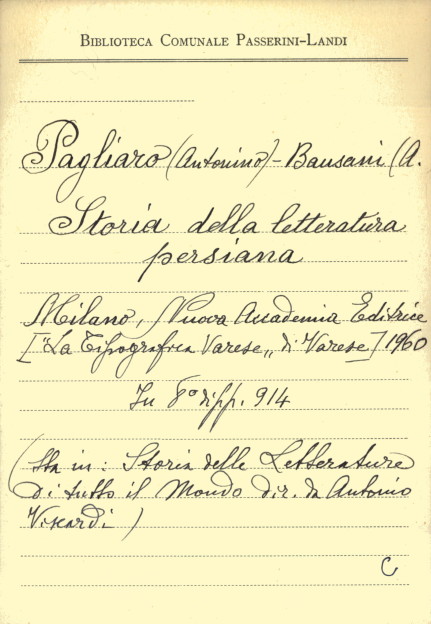 BIBLIOTECA COMUNALE PASSERINI-LANDI
Pagliaro (Antonino) - Bausani (A.
Storia della letteratura
persiana
Milano, Nuova Accademia Editrice
["La Tipografica Varese„ di Varese] 1960
In 8° di pp. 914
(Sta in: Storia delle Letterature
di tutto il Mondo dir. da Antonio
Viscardi)
C